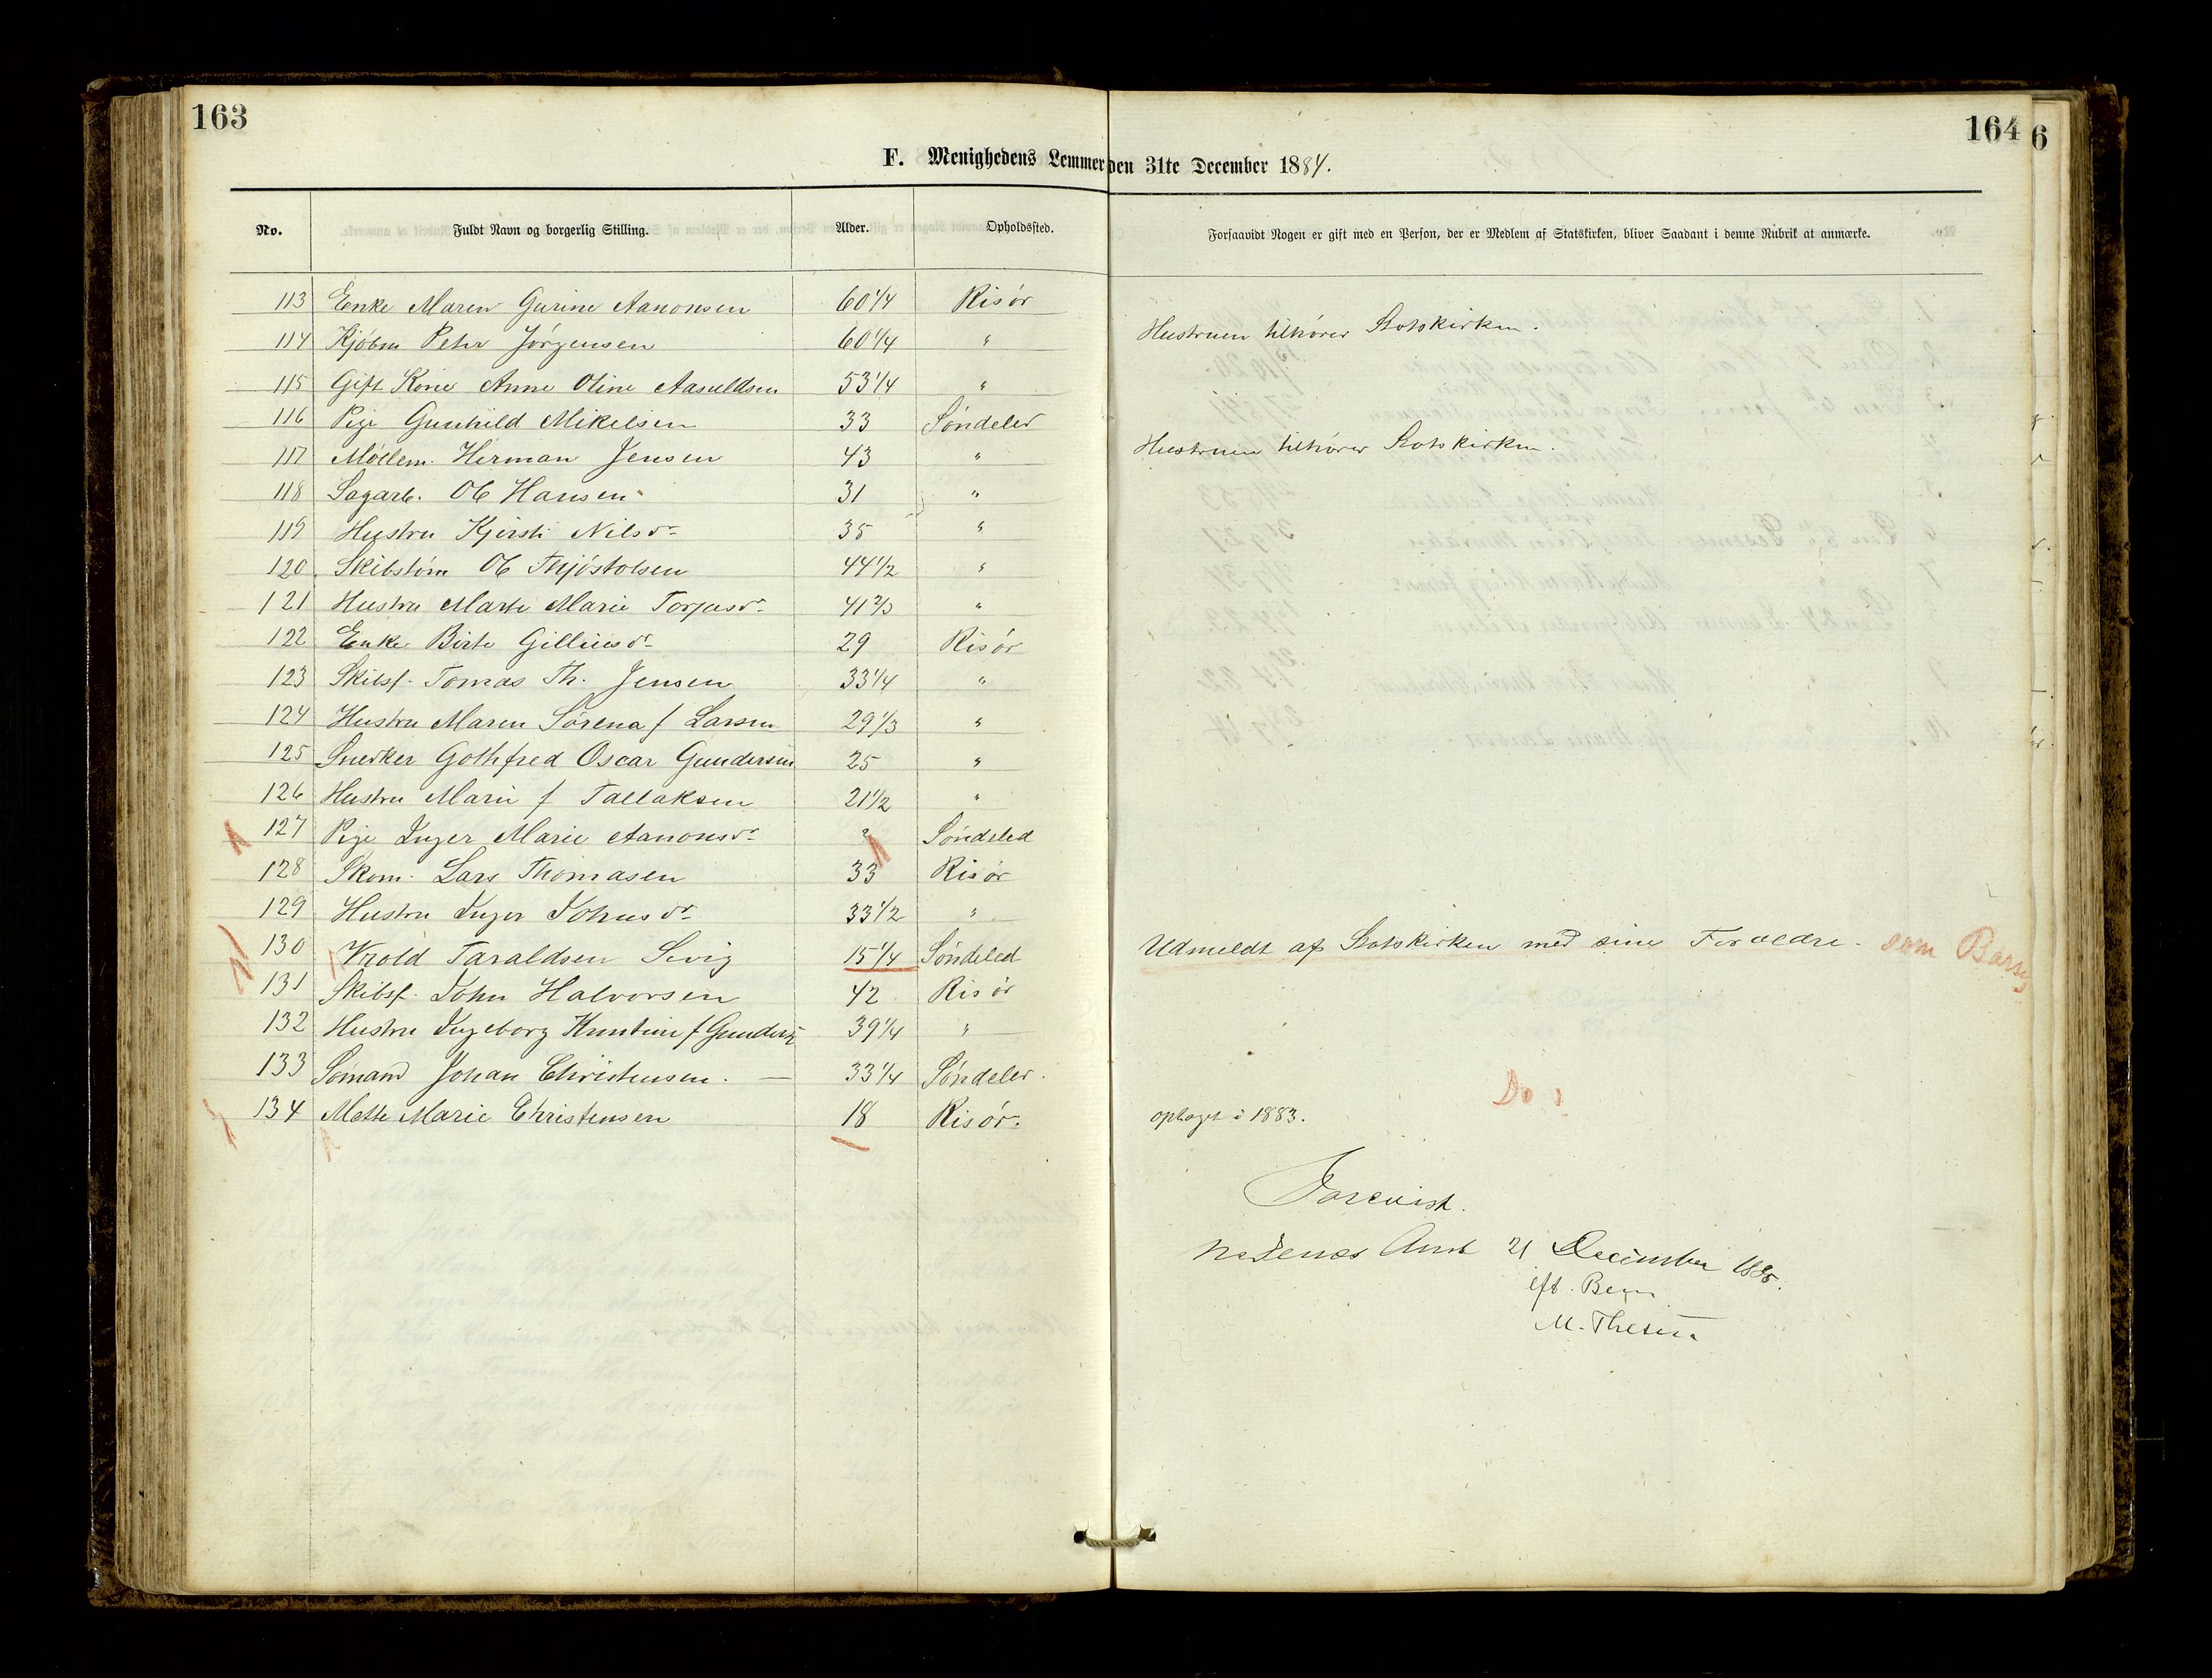 163
164
6
F. Menighedens Lemmer den 31te December 1884.
No. Fuldt Navn og borgerlig Stilling. Alder. Opholdssted. Forsaavidt Nogen er gift med en Person, der er Medlem af Statskirken, bliver Saadant i denne Rubrik at anmærke.
113 Enke Maren Gurine Aanonsen 60 1/4 Risör
114 Kjöbm Peter Jörgensen 60 1/4 " Hustruen tilhörer Statskirken.
115 Gift Kone Anne Oline Aasuldsen 53 1/4 "
116 Pige Gunhild Mikelsen 33 Söndeled
117 Möllem. Herman Jensen 43 " Hustruen tilhörer Statskirken.
118 Sagarb. Ole Hansen 31 "
119 Hustru Kjersti Nilsdr 35 "
120 Skibstöm Ole Thjöstolsen 44 1/2 "
121 Hustru Marte Marie Torjusdr 41 2/3 "
122 Enke Birte Gelliusdr 29 Risör
123 Skibsf. Tomas Th. Jensen 33 1/4 "
124 Hustru Maren Sörena f Larsen 29 1/3 "
125 Snedker Gothfred Oscar Gundersen 25 "
126 Hustru Marie f Tallaksen 21 1/2 "
127 Pige Inger Marie Aanonsdr ? Söndeled
128 Skom. Lars Thomasen 33 Risör
129 Hustru Inger Johnsdr 33 1/2 "
130 Vrold Taraldsen Sivig 15 1/4 Söndeled Udmeldt af Statskirken med sine Forældre. som Barn
131 Skibsf. John Halvorsen 42 Risör
132 Hustru Ingeborg Kuntine f Gunders 39 1/4 "
133 Sömand Johan Christensen. — 33 1/4 Söndeled.
Do
134 Mette Marie Christensen 18 Risör. optaget i 1883.
Forevist.
Nedenes Amt 21 December 1885.
eft. Bem
M. Thesen